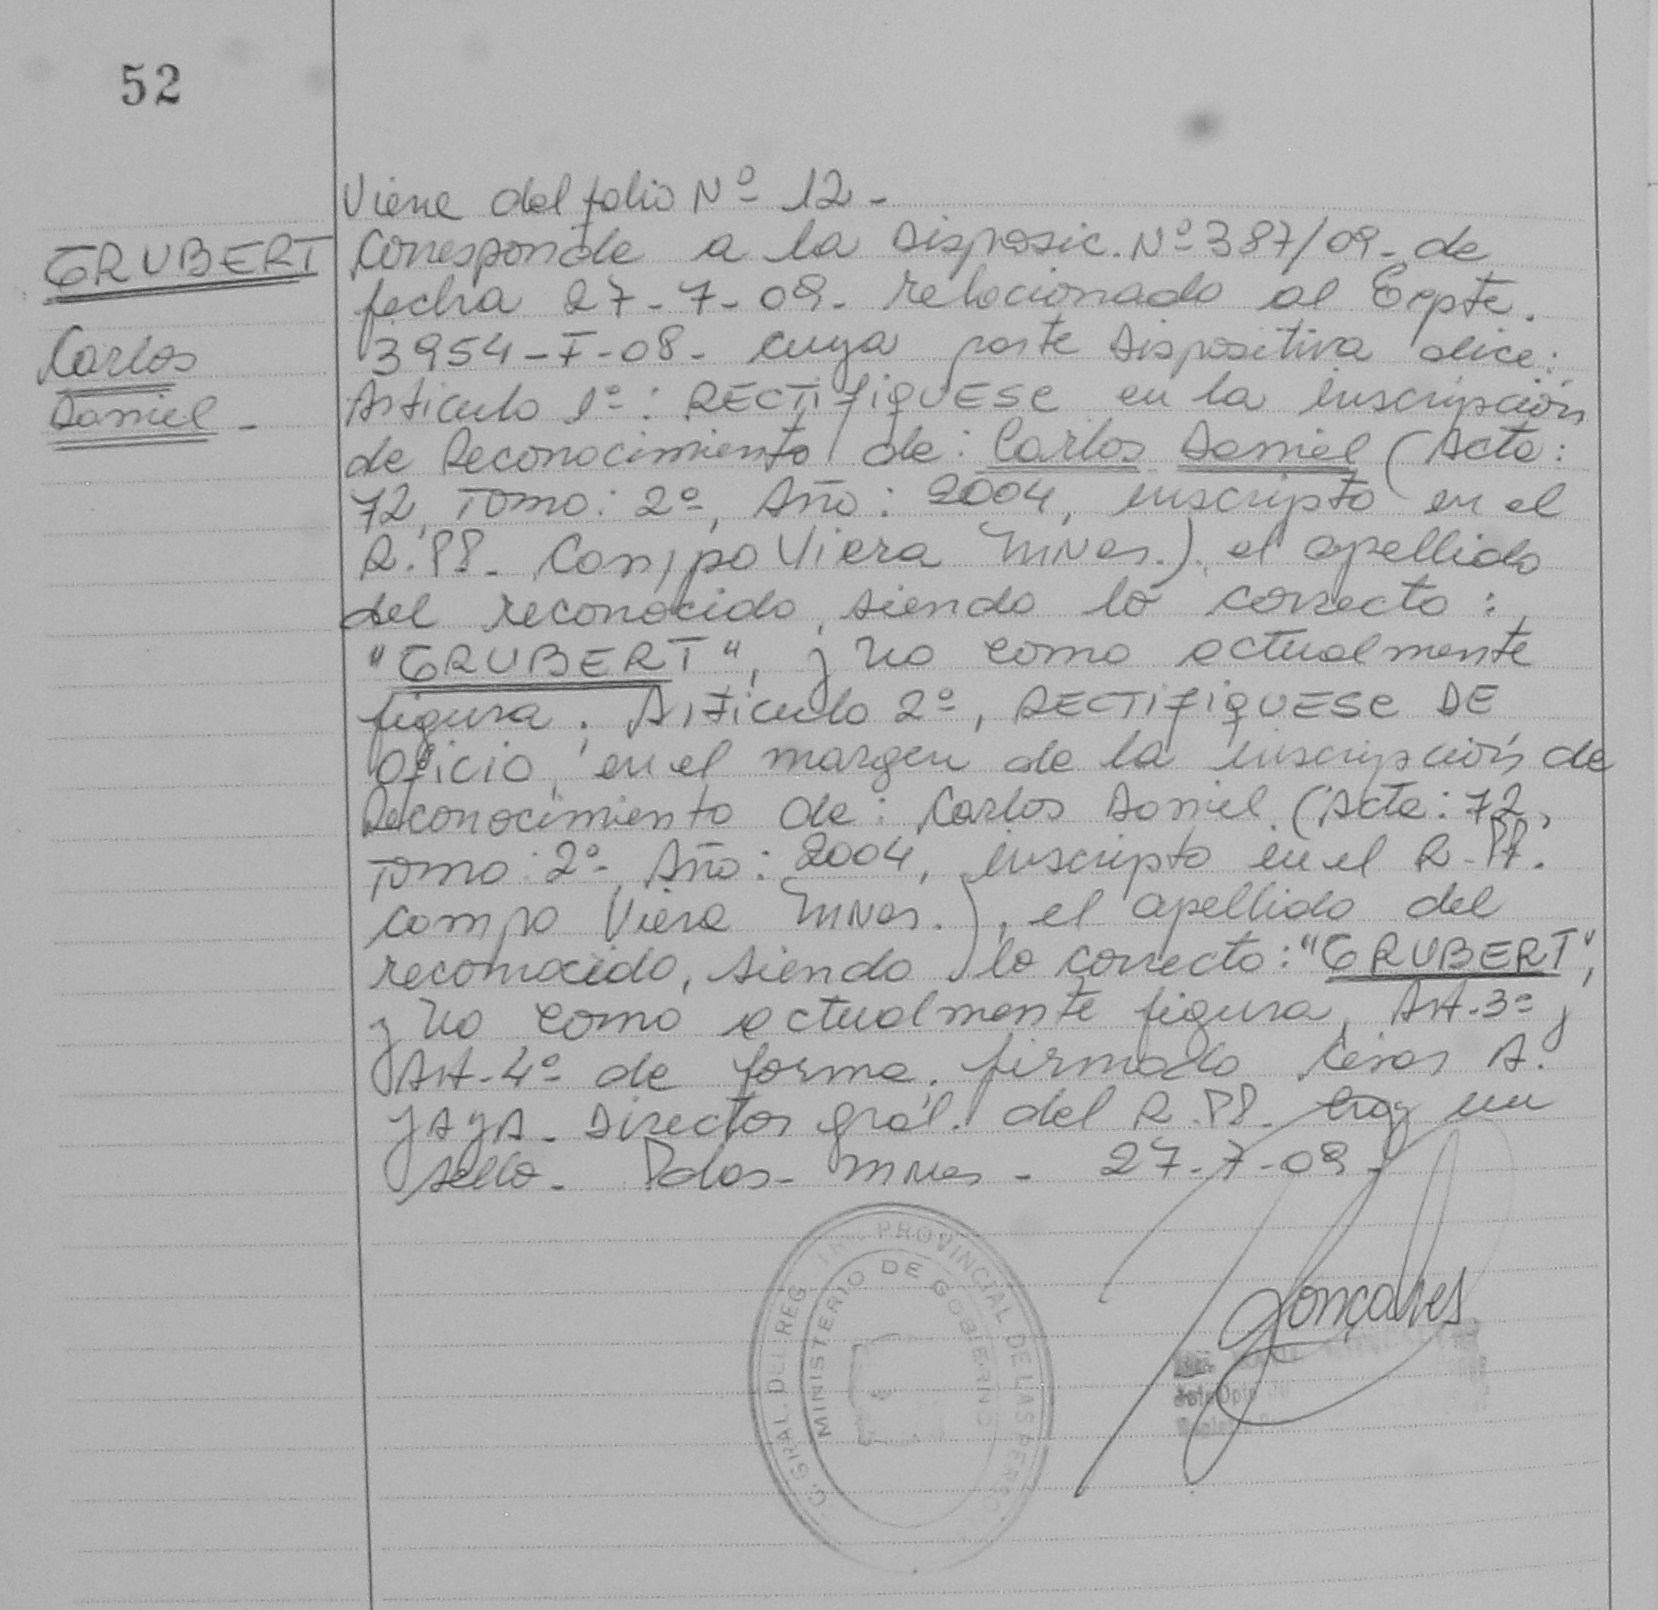 52
Viene del folio Nº 12-
GRUBERT
Corresponde a la Disposic. Nº 387/09- de
fecha 27-7-09- relacionado al Expte.
Carlos
3954-I-08- cuya parte Dispositiva dice:
Daniel-
Articulo 1º: RECTIFIQUESE en la inscripción
de Reconocimiento de: Carlos Daniel (Acta:
72, Tomo: 2º, Año: 2004, inscripto en el
R.PP. Campo Viera Mnes.), el apellido
del reconocido, siendo lo correcto:
"GRUBERT", y no como actualmente
figura. Articulo 2º, RECTIFIQUESE DE
Oficio, en el margen de la inscripción de
Reconocimiento de: Carlos Daniel (Acta: 72,
Tomo: 2º, Año: 2004, inscripto en el R-PP.
Campo Viera Mnes.), el apellido del
reconocido, siendo lo correcto: "GRUBERT",
y no como actualmente figura, Art-3º y
Art-4º de forma. firmado A.
YAYA- Director gral. del R.PP. hay un
sello- Pdas- Mnes- 27-7-09-
PROVINCIAL DE LAS PERSO
GRAL. DEL REG
MINISTERIO DE GOBIERNO
Gonçalves